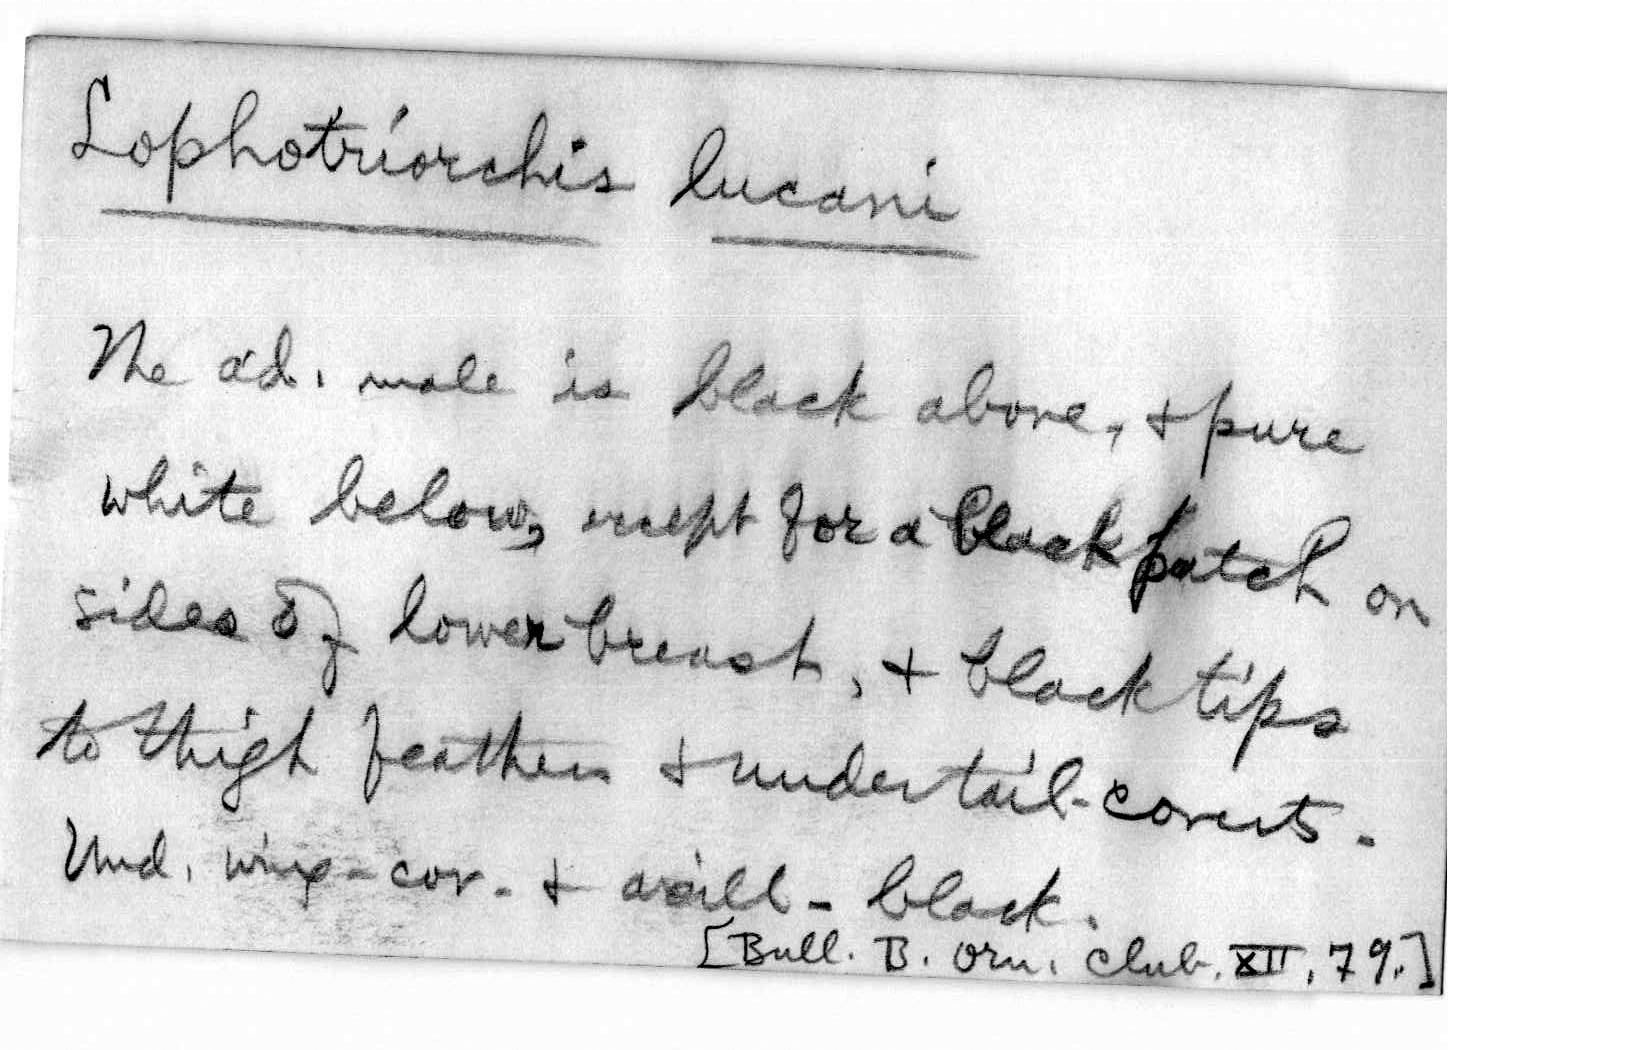 Lophotriorchis lucani
The ad. male is black above, & pure
white below, except for a black patch on
sides of lower breast, & black tips
to thigh feathers & under tail-coverts.
Und. wing-cov. & axill - black.
[Bull. B. Orn. Club. XII, 79.]